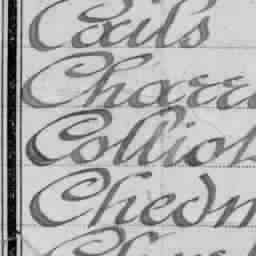 Coils
Charr
Colliot
Chedm